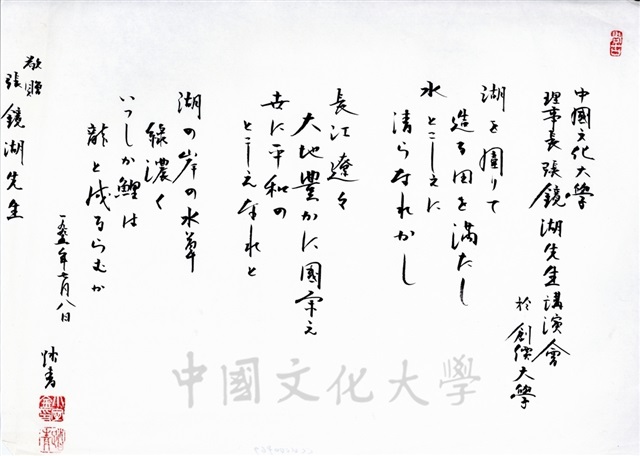 中國文化大學
理事長張鏡湖先生講演會
於 創價大學
湖を圍りて
造る田を満たし
水とこしえに
清らなれかし
長江遼々
大地豊かに國榮え
世に平和の
とこしえなれと
湖の岸の水草
緑濃く
いつしか鯉は
龍と成るらむか
一九九五年七月八日
敬贈
張鏡湖先生
中國文化大學